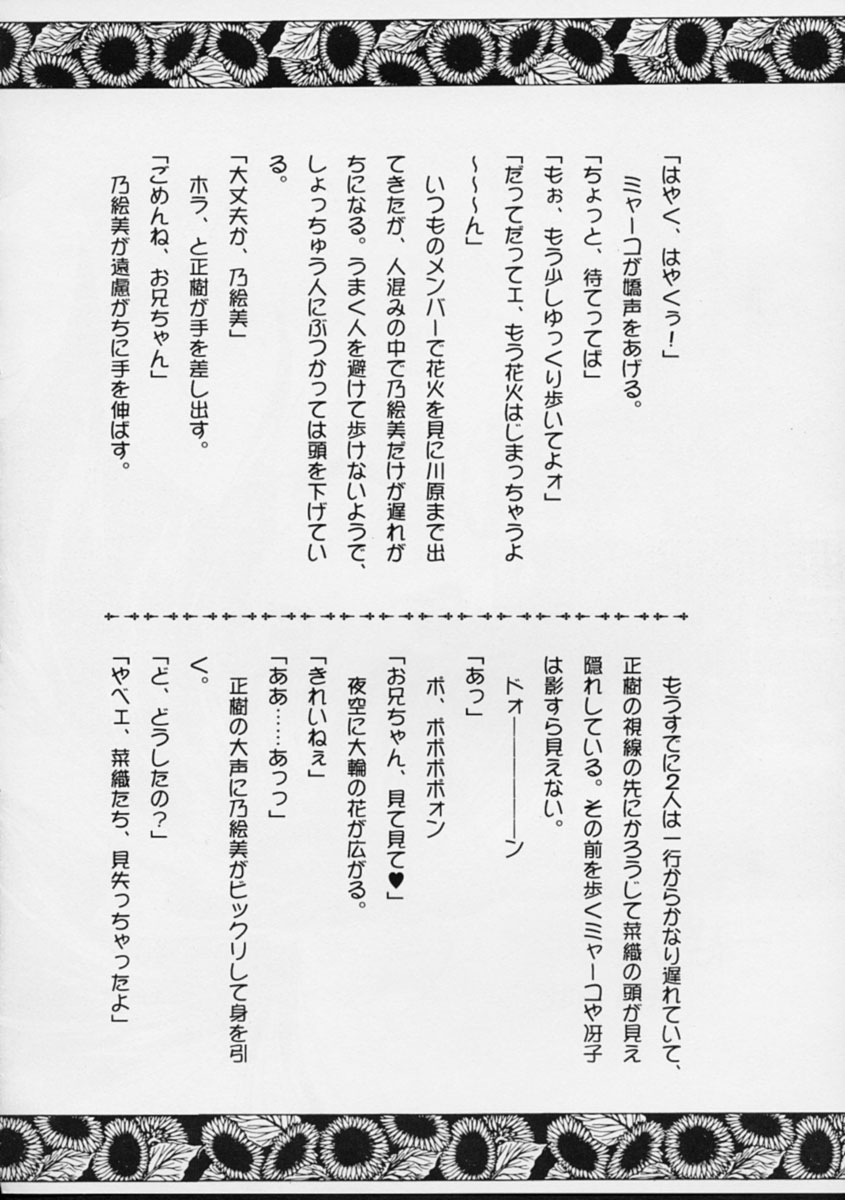 「はやく、はやくぅ！」
　ミャーコが嬌声をあげる。
「ちょっと、待てってば」
「もぉ、もう少しゆっくり歩いてよォ」
「だってだってェ、もう花火はじまっちゃうよ
～～～ん」
　いつものメンバーで花火を見に川原まで出
てきたが、人混みの中で乃絵美だけが遅れが
ちになる。うまく人を避けて歩けないようで、
しょっちゅう人にぶつかっては頭を下げてい
る。
「大丈夫か、乃絵美」
　ホラ、と正樹が手を差し出す。
「ごめんね、お兄ちゃん」
　乃絵美が遠慮がちに手を伸ばす。
　もうすでに２人は一行からかなり遅れていて、
正樹の視線の先にかろうじて菜織の頭が見え
隠れしている。その前を歩くミャーコや冴子
は影すら見えない。
　ドォ――――――ン
「あっ」
　ボ、ボボボボォン
「お兄ちゃん、見て見て♥」
　夜空に大輪の花が広がる。
「きれいねぇ」
「ああ……あっっ」
　正樹の大声に乃絵美がビックリして身を引
く。
「ど、どうしたの？」
「やべェ、菜織たち、見失っちゃったよ」